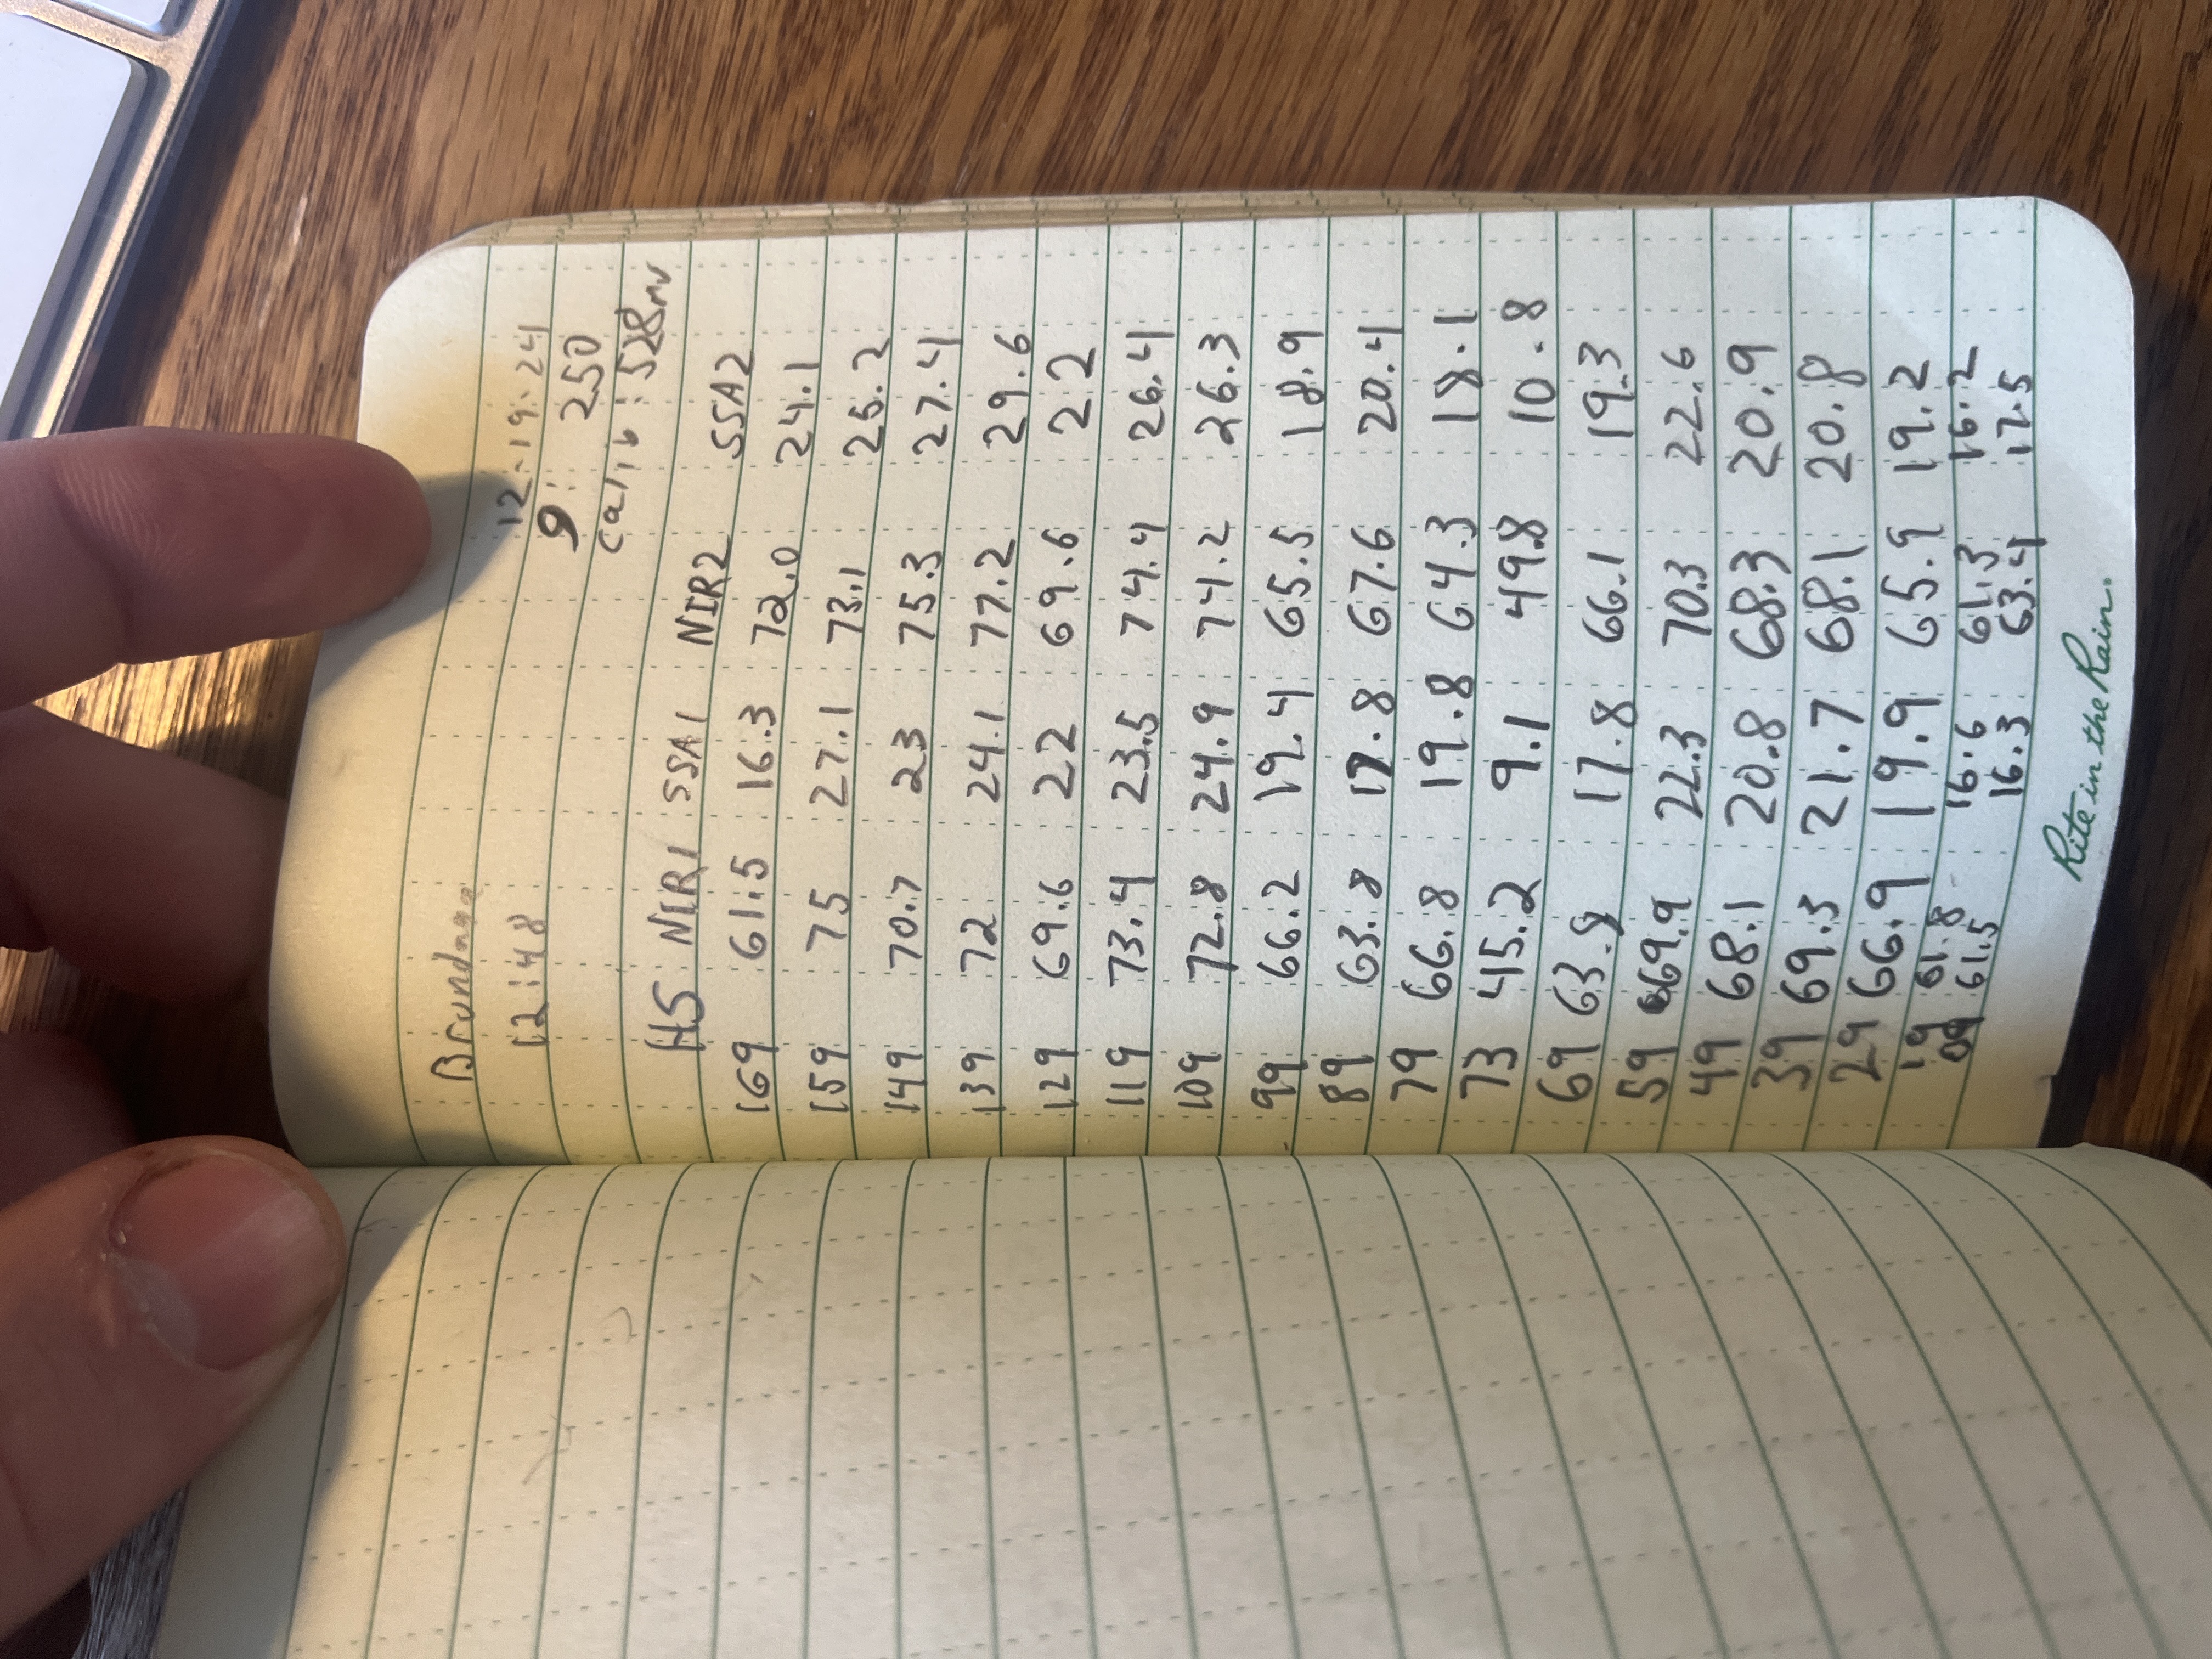 Brundage
12-19-24
12:48
9: 250
calib: 528mv
HS NIR1 SSA1 NIR2 SSA2
169 61.5 16.3 72.0 24.1
159 75 27.1 73.1 25.2
149 70.7 23 75.3 27.4
139 72 24.1 77.2 29.6
129 69.6 22 69.6 22
119 73.4 23.5 74.4 26.4
109 72.8 24.9 74.2 26.3
99 66.2 19.4 65.5 18.9
89 63.8 17.8 67.6 20.4
79 66.8 19.8 64.3 18.1
73 45.2 9.1 49.8 10.8
69 63.8 17.8 66.1 19.3
59 69.9 22.3 70.3 22.6
49 68.1 20.8 68.3 20.9
39 69.3 21.7 68.1 20.8
29 66.9 19.9 65.9 19.2
19 61.8 16.6 61.3 16.2
09 61.5 16.3 63.4 17.5
Rite in the Rain.